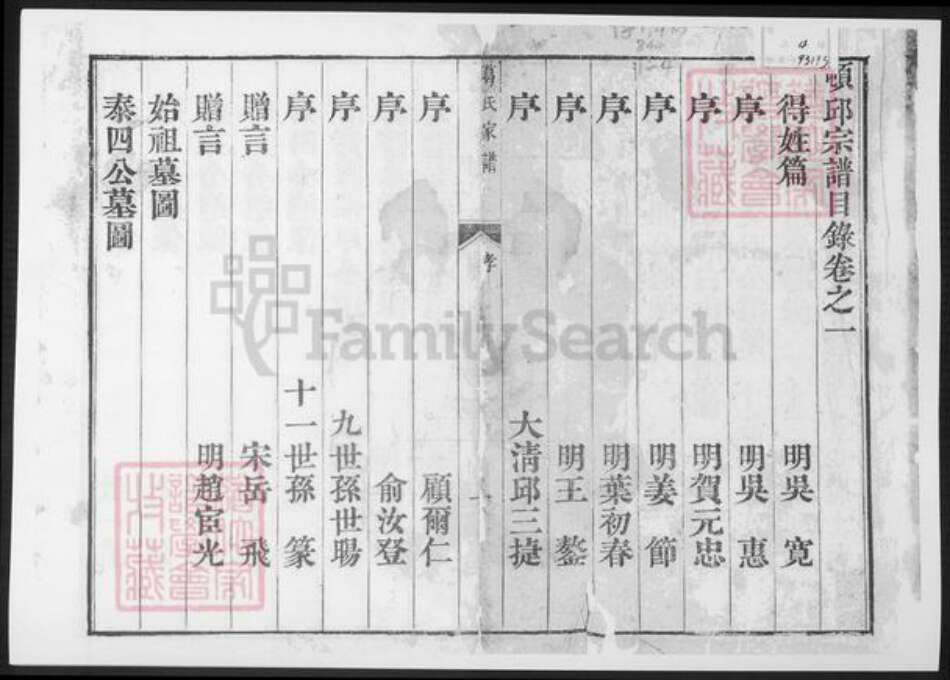 頓邱宗譜目錄卷之一
得姓篇 明吳 寬
序 明吳 惠
序 明賀元忠
序 明姜 節
序 明葉初春
序 明王 鏊
序 大清邱三捷
葛氏家譜 孝 一
序 顧爾仁
序 俞汝登
序 九世孫世暘
序 十一世孫 篆
贈言 宋岳 飛
贈言 明趙宧光
始祖墓圖
泰四公墓圖
FamilySearch